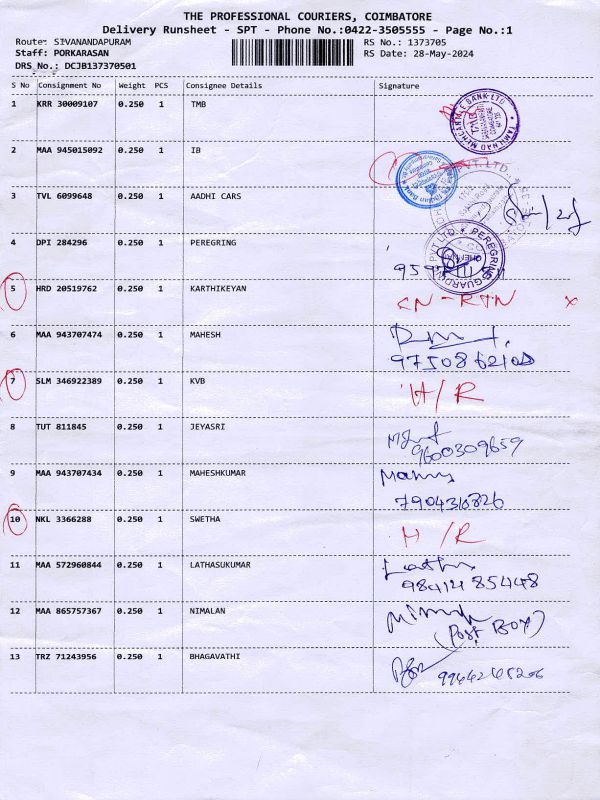 THE PROFESSIONAL COURIERS, COIMBATORE
Delivery Runsheet - SPT - Phone No.:0422-3505555 - Page No.:1
Route: SIVANANDAPURAM RS No.: 1373705
Staff: PORKARASAN RS Date: 28-May-2024
DRS No.: DCJB137370501
S No Consignment No Weight PCS Consignee Details Signature
1 KRR 30009107 0.250 1 TMB
2 MAA 945015092 0.250 1 IB
3 TVL 6099648 0.250 1 AADHI CARS
4 DPI 284296 0.250 1 PEREGRING
5 HRD 20519762 0.250 1 KARTHIKEYAN CN-RTN x
6 MAA 943707474 0.250 1 MAHESH
9750862100
7 SLM 346922389 0.250 1 KVB H/R
8 TUT 811845 0.250 1 JEYASRI
9600309659
9 MAA 943707434 0.250 1 MAHESHKUMAR
7904310826
10 NKL 3366288 0.250 1 SWETHA H/R
11 MAA 572960844 0.250 1 LATHASUKUMAR
98414 85448
12 MAA 865757367 0.250 1 NIMALAN
(Post BOY)
13 TRZ 71243956 0.250 1 BHAGAVATHI